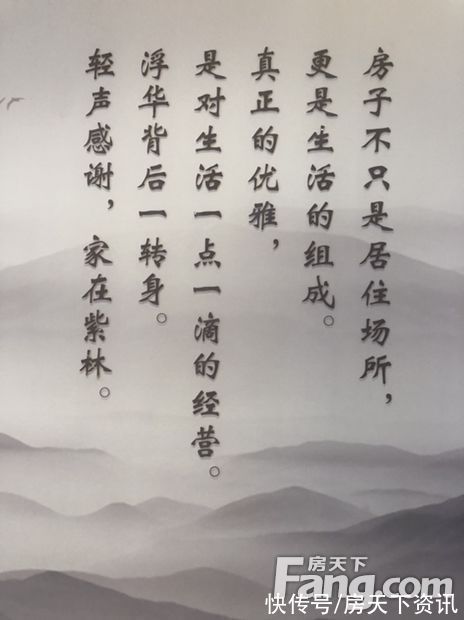 房子不只是居住场所，
更是生活的组成。
真正的优雅，
是对生活一点一滴的经营。
浮华背后一转身。
轻声感谢，家在紫林。
房天下
Fang.com
快传号/房天下资讯